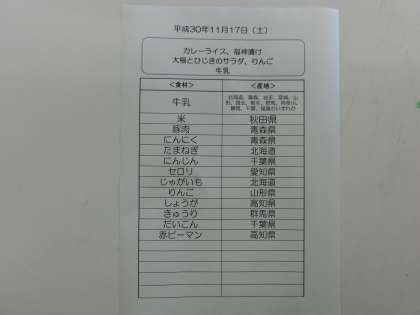 平成30年11月17日（土）
カレーライス、福神漬け
大根とひじきのサラダ、りんご
牛乳
＜食材＞ ＜産地＞
牛乳
米 秋田県
豚肉 青森県
にんにく 青森県
たまねぎ 北海道
にんじん 千葉県
セロリ 愛知県
じゃがいも 北海道
りんご 山形県
しょうが 高知県
きゅうり 群馬県
だいこん 千葉県
赤ピーマン 高知県